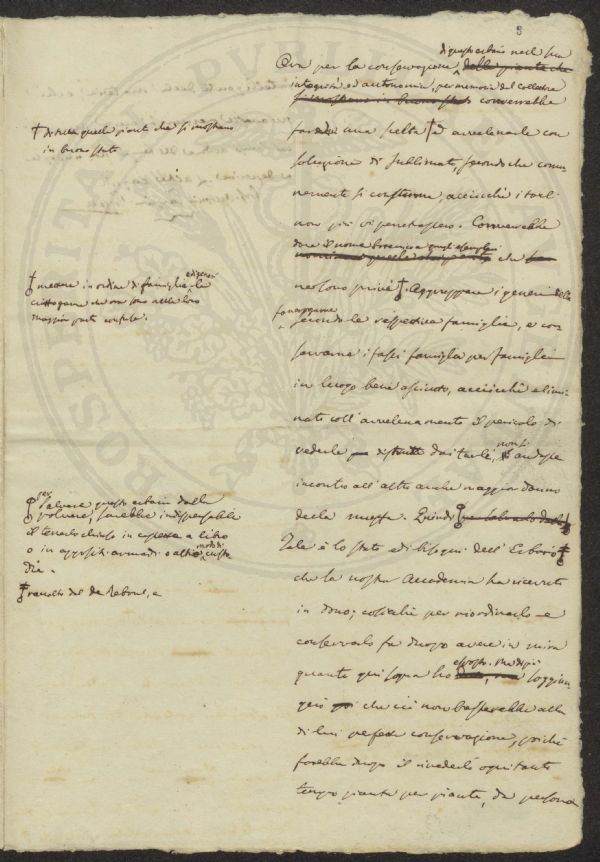 di questo erbario nella sua
Ora per la conservazione delle piante che
integrità ed autonomia, per memoria del collettore
si mostrano in buono stato converrebbe
fare una scelta ed avvelenarle con
soluzione di sublimato, secondo che comu
nemente si costuma, acciocchè i tarli
non più vi penetrassero. Converrebbe
dare il nome botanico a quegli esemplari
che
ne sono privi. Aggruppare i generi delle
fanerogame
secondo le rispettive famiglie, e con
servarne i fasci famiglia per famiglia
in luogo bene asciutto, acciocchè elimi
nato coll'avvelenamento il pericolo di
vederle distrutte dai tarli, non si andasse
incontro all'altro anche maggior danno
della muffa. Quindi
Tale è lo stato ed i bisogni dell'Erbario
che la nostra Accademia ha ricevuto
in dono; cosicchè per riordinarlo e
conservarlo fa duopo avere in mira
quanto qui sopra ho esposto. Ma di più
soggiun
gerò che ciò non basterebbe alla
di lui perfetta conservazione, poichè
farebbe duopo il rivederlo ogni tanto
tempo pianta per pianta, da persona
di tutte quelle piante che si mostrano
in buono stato
mettere in ordine di famiglia e di generi le
crittogame che ora sono nella loro
maggior parte confuse.
per
salvare questo erbario dalla
polvere, sarebbe indispensabile
il tenerlo chiuso in cassette a libro
o in appositi armadi o altro modo di custo
dia.
raccolto dal de Rebous, e